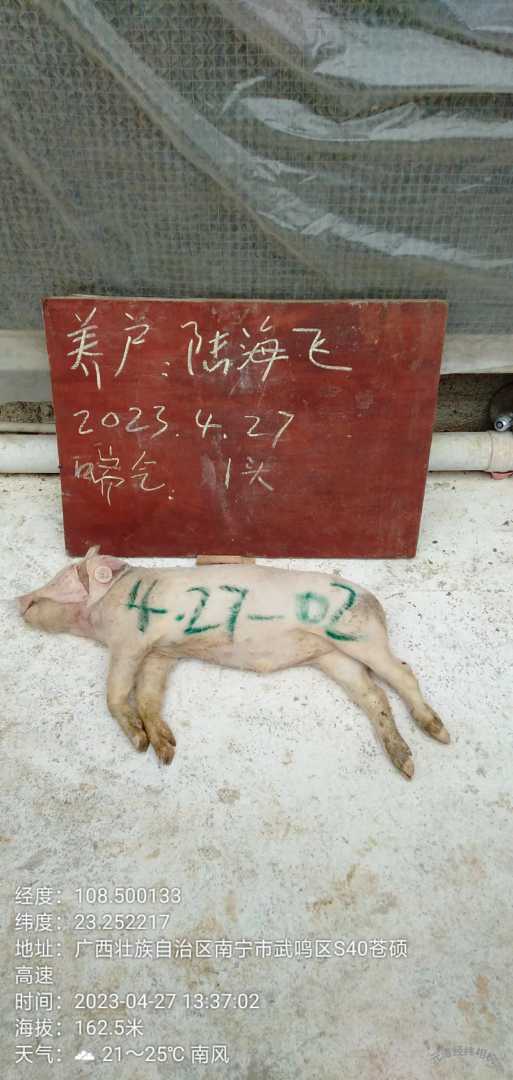 养户:陆海飞
2023.4.27
喘气. 1头
4.27-02
经度：108.500133
纬度：23.252217
地址：广西壮族自治区南宁市武鸣区S40苍硕
高速
时间：2023-04-27 13:37:02
海拔：162.5米
天气：☁ 21～25℃ 南风